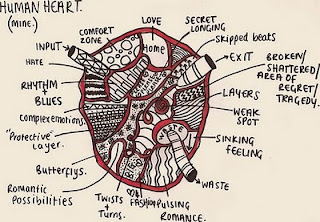 HUMAN HEART.
(mine.)
COMFORT
ZONE
LOVE
SECRET
LONGING
skipped beats
INPUT
Home
EXIT
HATE
BROKEN/
SHATTERED/
AREA OF
REGRET/
TRAGEDY.
RHYTHM
+
BLUES
LAYERS
complexemotions
WEAK
SPOT
"Protective"
Layer.
SINKING
FEELING
Butterflys.
Romantic
Possibilities
WASTE
TWISTS
+
Turns.
OLD
FASHION
PULSING
ROMANCE.